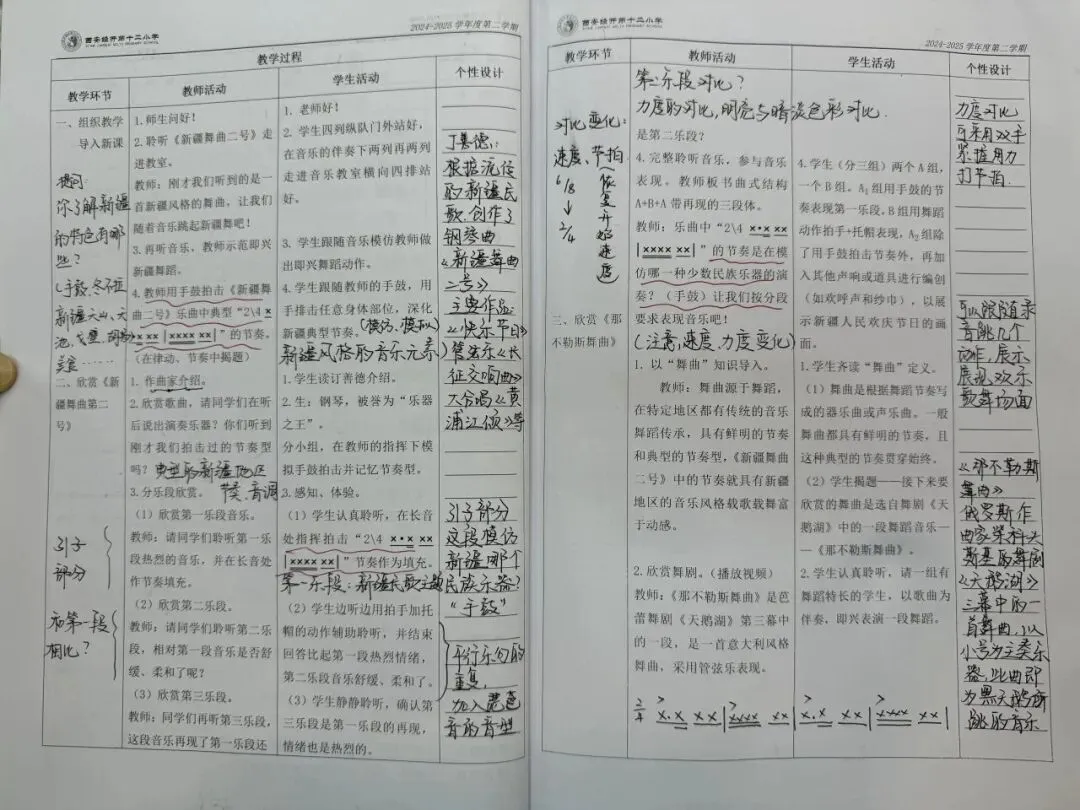 西安经开第十二小学
2024-2025 学年度第二学期
教学过程
教学环节
教师活动
学生活动
个性设计
一、组织教学
导入新课
提问:
你了解新疆
的特色有哪
些?
(手鼓、冬不拉
新疆天山、天
池、戈壁
二、欣赏《新
疆舞曲第二
号》
引子
部分
和第一段
相比?
1. 师生问好!
2. 聆听《新疆舞曲二号》走
进教室。
教师:刚才我们听到的是一
首新疆风格的舞曲,让我们
随着音乐跳起新疆舞吧!
3. 再听音乐、教师示范即兴
新疆舞蹈。
4. 教师用手鼓拍击《新疆舞
曲二号》乐曲中典型“2\4 x
x·xx | xxxx xx |”的节奏。
(在律动、节奏中揭题)
1. 作曲家介绍。
2. 欣赏歌曲,请同学们在听
后说出演奏乐器?你们听到
刚才我们拍击过的节奏型
吗?
典型的新疆地区
节奏、音调
3. 分乐段欣赏。
(1)欣赏第一乐段音乐。
教师:请同学们聆听第一乐
段热烈的音乐,并在长音处
作节奏填充。
(2)欣赏第二乐段。
教师:请同学们聆听第二乐
段,相对第一段音乐是否舒
缓、柔和了呢?
(3)欣赏第三乐段。
教师:同学们再听第三乐段,
这段音乐再现了第一乐段还
1. 老师好!
2. 学生四列纵队门外站好,
在音乐的伴奏下两列再两列
走进音乐教室横向四排站
好。
3. 学生跟随音乐模仿教师做
出即兴舞蹈动作。
4. 学生跟随教师的手鼓,用
手排击任意身体部位,深化
新疆典型节奏。
新疆风格的音乐元素)
1. 学生读订善德介绍。
2. 生:钢琴,被誉为“乐器
之王”。
分小组,在教师的指挥下模
拟手鼓拍击并记忆节奏型。
3. 感知、体验。
(1)学生认真聆听,在长音
处指挥拍击“2\4 x·x xx
| xxxx xx |”节奏作为填充。
第一乐段:新疆民歌主题
(2)学生边听边用拍手加托
帽的动作辅助聆听,并结束
回答比起第一段热烈情绪,
第二乐段音乐舒缓、柔和了。
(3)学生静静聆听,确认第
三乐段是第一乐段的再现,
情绪也是热烈的。
丁善德:
根据流传
的新疆民
歌,创作了
钢琴曲
《新疆舞曲
二号》
主要作品:
《快乐节日》
管弦乐《长
征交响曲》
大合唱《黄
浦江颂》等
引子部分
这段模仿
新疆哪个
民族乐器?
“手鼓”
平行乐句的
重复,
加入琶音
音的音型
西安经开第十二小学
2024-2025 学年度第二学期
教学环节
教师活动
学生活动
个性设计
对比变化:
速度、节拍
6/8
↓
2/4
(恢复开始速度
三、欣赏《那
不勒斯舞曲》
第二乐段对比?
力度的对比,明亮与暗淡色彩对比.
是第二乐段?
4. 完整聆听音乐,参与音乐
表现。教师板书曲式结构
A+B+A 带再现的三段体。
教师:乐曲中“2\4 x·x xx
| xxxx xx |”的节奏是在模
仿哪一种少数民族乐器的演
奏?(手鼓)让我们按分段
要求表现音乐吧!
(注意,速度、力度变化)
1. 以“舞曲”知识导入。
教师:舞曲源于舞蹈,
在特定地区都有传统的音乐
舞蹈传承,具有鲜明的节奏
和典型的节奏型,《新疆舞曲
二号》中的节奏就具有新疆
地区的音乐风格载歌载舞富
于动感。
2. 欣赏舞剧。(播放视频)
教师:《那不勒斯舞曲》是芭
蕾舞剧《天鹅湖》第三幕中
的一段,是一首意大利风格
舞曲,采用管弦乐表现。
4. 学生(分三组)两个 A 组,
一个 B 组。A₁ 组用手鼓的节
奏表现第一乐段。B 组用舞蹈
动作拍手+托帽表现,A₂ 组除
了用手鼓拍击节奏外,再加
入其他声响或道具进行编创
(如欢呼声和纱巾),以展
示新疆人民欢庆节日的画
面。
1. 学生齐读“舞曲”定义。
(1)舞曲是根据舞蹈节奏写
成的器乐曲或声乐曲。一般
舞曲都具有鲜明的节奏,且
这种典型的节奏贯穿始终。
(2)学生揭题——接下来要
欣赏的舞曲是选自舞剧《天
鹅湖》中的一段舞蹈音乐—
—《那不勒斯舞曲》。
2. 学生认真聆听,请一组有
舞蹈特长的学生,以歌曲为
伴奏,即兴表演一段舞蹈。
2/4 x.x xx | xxxx xx | x.x xx | xxxx xx |
力度对比
可采用双手
紧握用力
打节拍.
可以跟随录
音跳几个
动作,展示
展现欢乐
歌舞场面
《那不勒斯
舞曲》
俄罗斯作
曲家柴科夫
斯基的舞剧
《天鹅湖》
三幕中的一
首舞曲,以
小号为主奏乐
器,此曲即
为黑天鹅所
跳的音乐